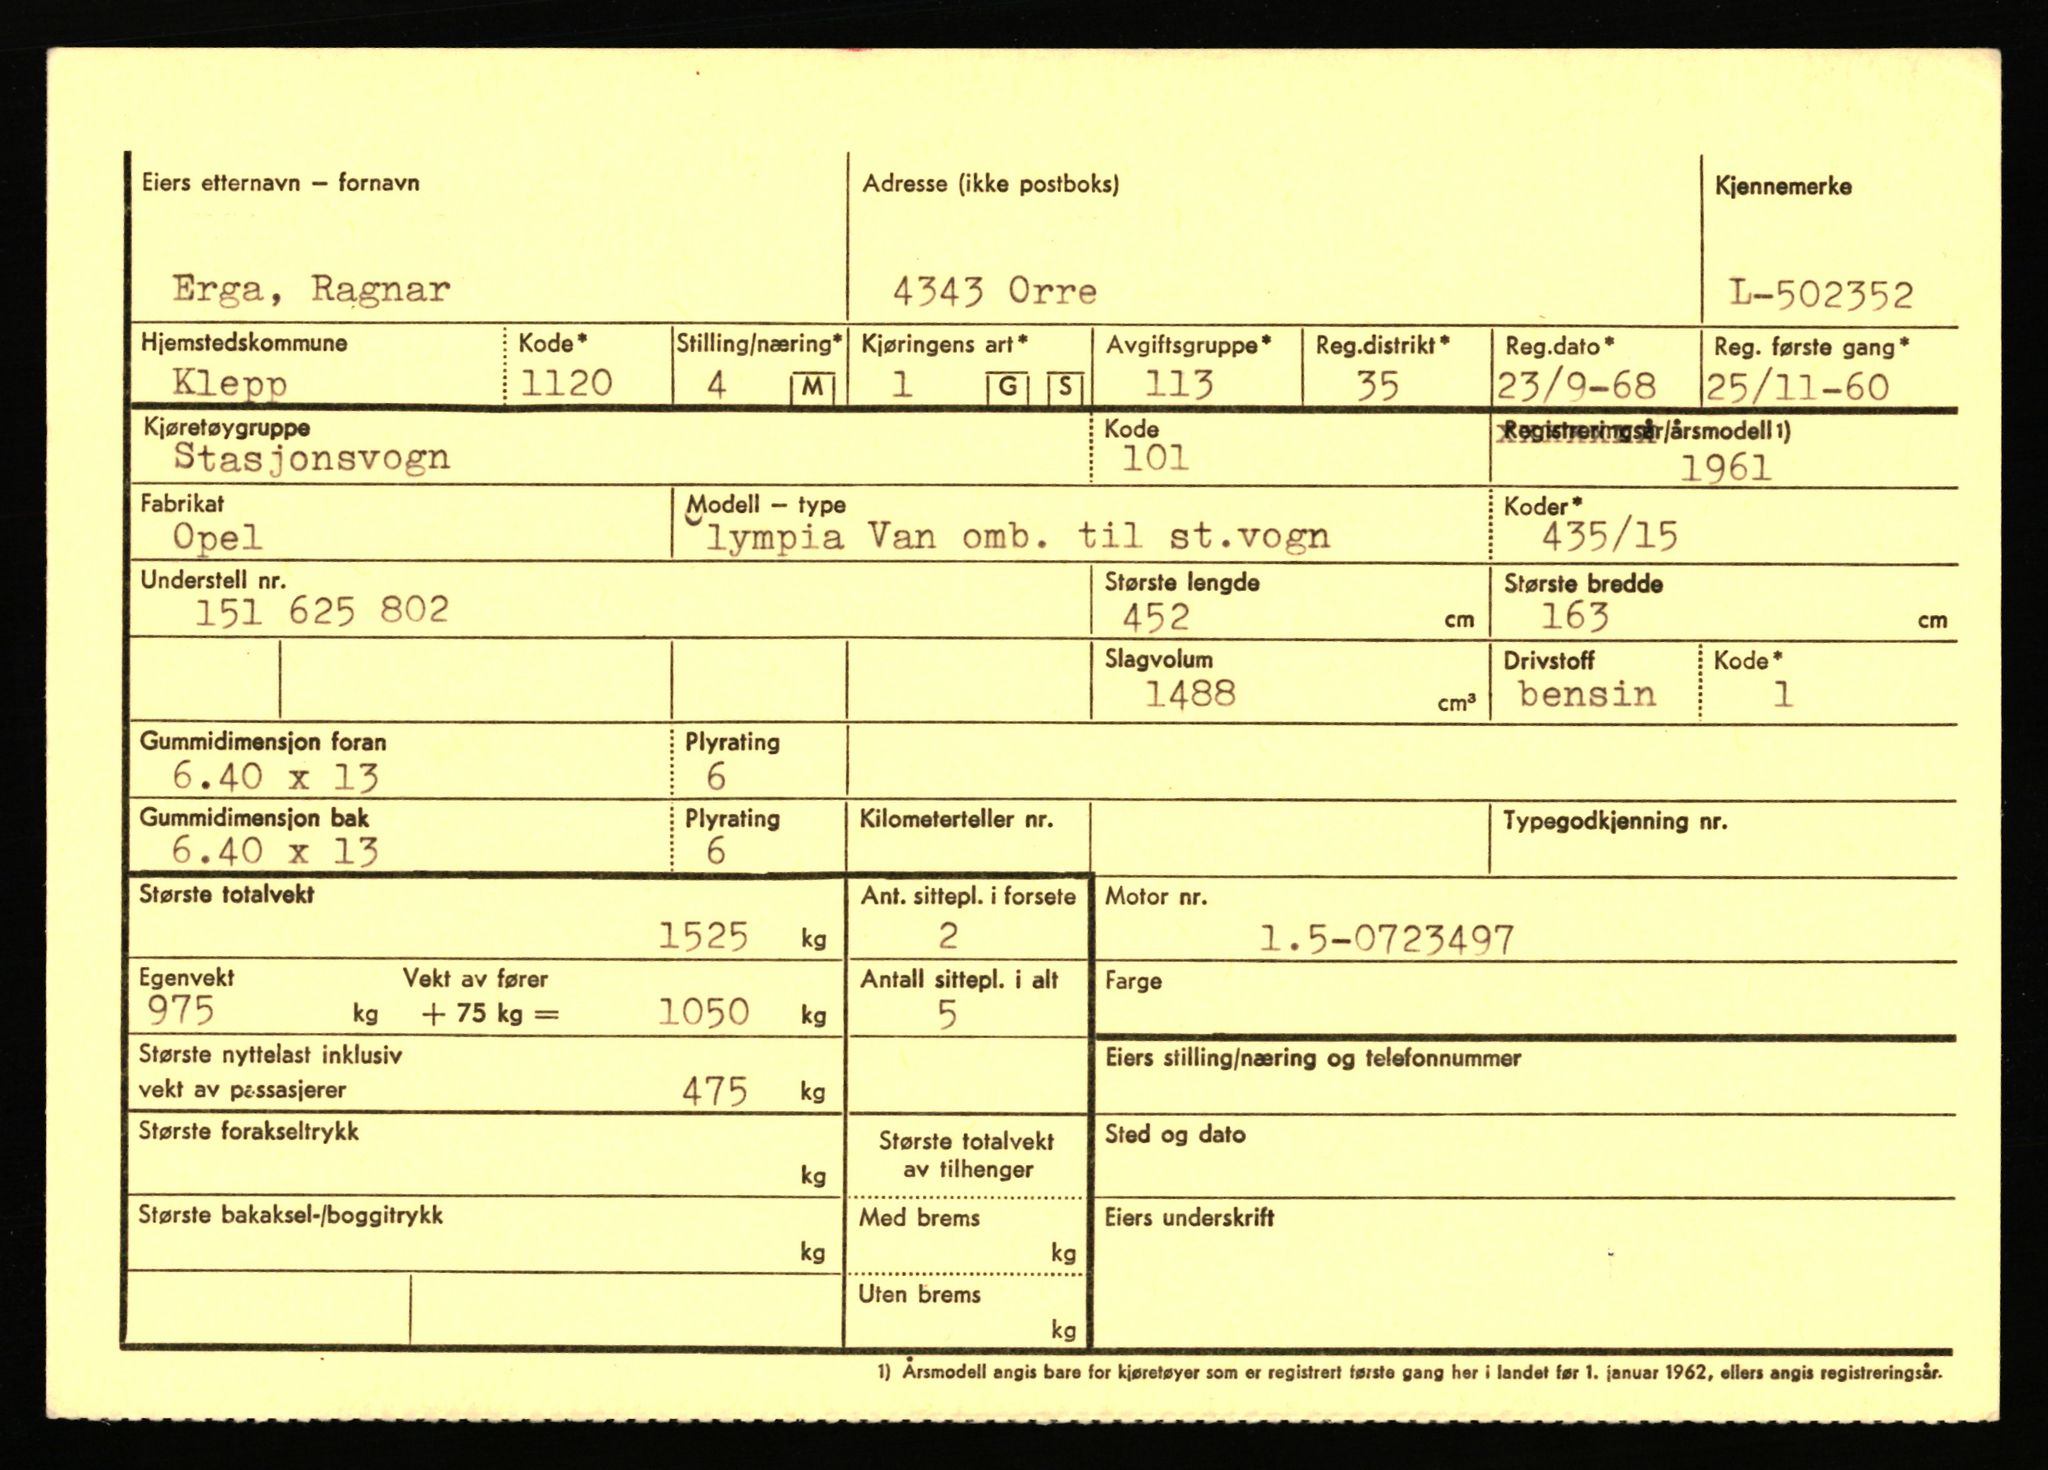 Eiers etternavn – fornavn Adresse (ikke postboks) Kjennemerke
Erga, Ragnar 4343 Orre L-502352
Hjemstedskommune Kode* Stilling/næring* Kjøringens art* Avgiftsgruppe* Reg.distrikt* Reg.dato* Reg. første gang*
Klepp 1120 4 M 1 G S 113 35 23/9-68 25/11-60
Kjøretøygruppe Kode Registreringsår/årsmodell 1)
Stasjonsvogn 101 1961
Fabrikat Modell – type Koder*
Opel lympia Van omb. til st.vogn 435/15
Understell nr. Største lengde Største bredde
151 625 802 452 cm 163 cm
Slagvolum Drivstoff Kode*
1488 cm³ bensin 1
Gummidimensjon foran Plyrating
6.40 x 13 6
Gummidimensjon bak Plyrating Kilometerteller nr. Typegodkjenning nr.
6.40 x 13 6
Største totalvekt Ant. sittepl. i forsete Motor nr.
1525 kg 2 1.5-0723497
Egenvekt Vekt av fører Antall sittepl. i alt Farge
975 kg + 75 kg = 1050 kg 5
Største nyttelast inklusiv Eiers stilling/næring og telefonnummer
vekt av passasjerer 475 kg
Største forakseltrykk Største totalvekt Sted og dato
kg av tilhenger
Største bakaksel-/boggitrykk Med brems Eiers underskrift
kg kg
Uten brems
kg
1) Årsmodell angis bare for kjøretøyer som er registrert første gang her i landet før 1. januar 1962, ellers angis registreringsår.